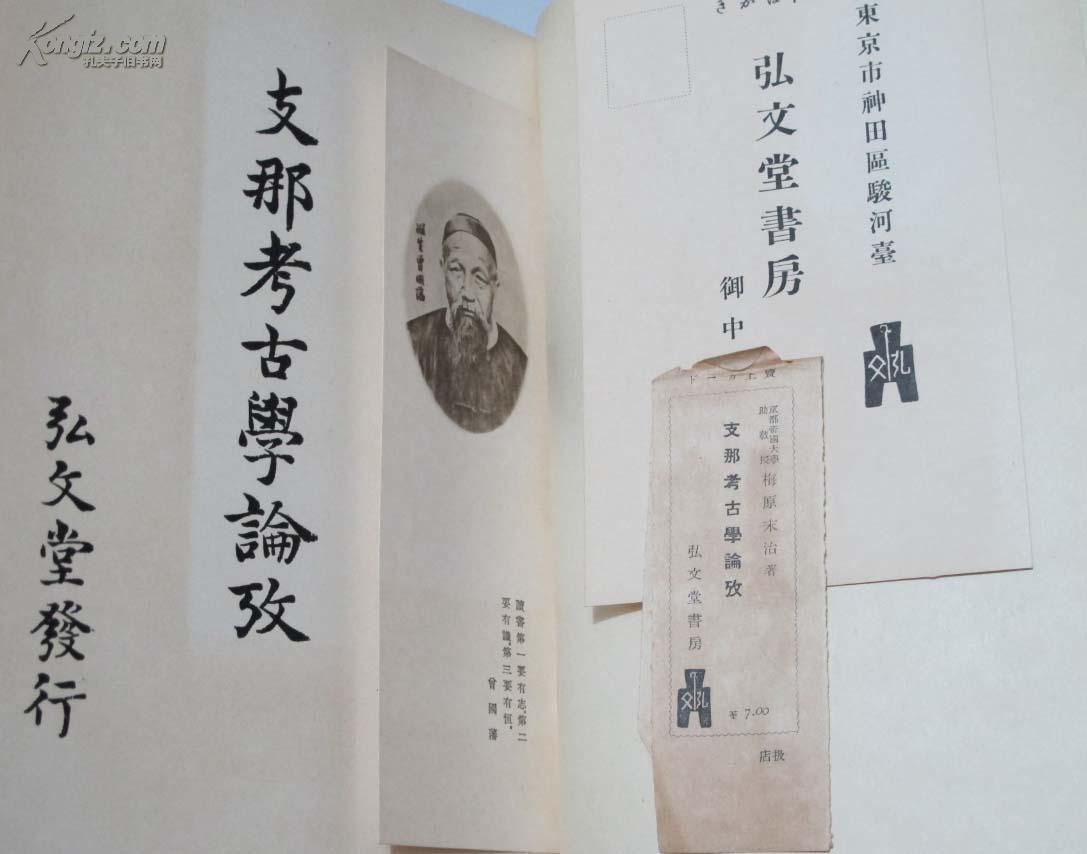 Kongfz.com
孔夫子旧书网
支那考古學論攷
弘文堂發行
曾國藩
讀書第一要有志、第二
要有識、第三要有恒、
曾國藩
東京市神田區駿河臺
弘文堂書房
御中
賣上カード
京都帝國大學
助教授
梅原末治著
支那考古學論攷
弘文堂書房
￥7.00
扱店